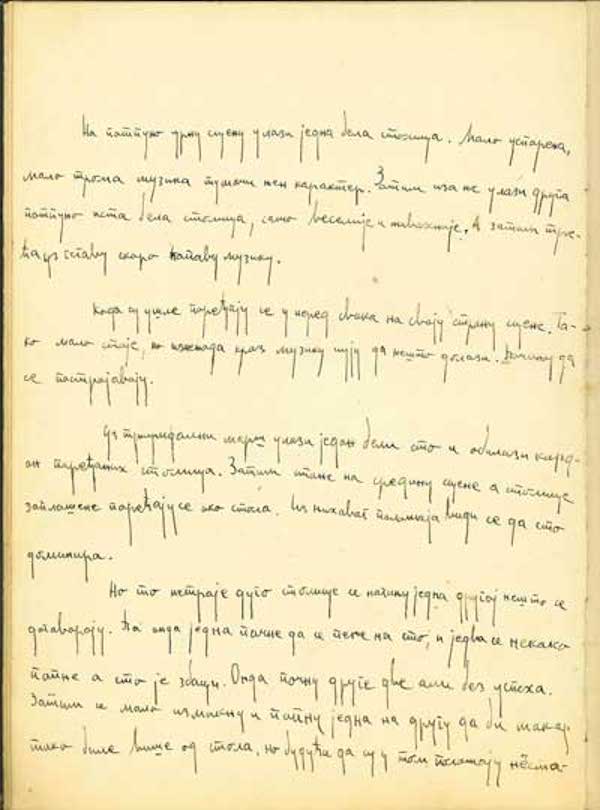 На потпуно црну сцену улази једна бела столица. Мало успорена,
мало трома музика тумачи њен карактер. Затим иза ње улази друга
потпуно иста бела столица, само веселије и живахније. А затим тре-
ћа уз скоро музику.
Када су ушле поређају се у неред свака на своју страну сцене. Та-
ко мало стоје, но кроз музику чују да нешто долази. Почињу да
се постројавају.
Уз тријумфални марш улази један бели сто и обилази кордо-
он поређаних столица. Затим стане на средину сцене а столице
заплашене поређају се око стола. Из њиховог положаја види се да сто
доминира.
Но то не траје дуго столице се почињу једна другој нешто се
договарају. Па онда једна почне да се пење на сто, и једва се некако
попне а сто је збаци. Онда почну друге две али без успеха.
Затим се мало измакну и попну једна на другу да би макар
тако биле више од стола, но будући да су у том положају неста-